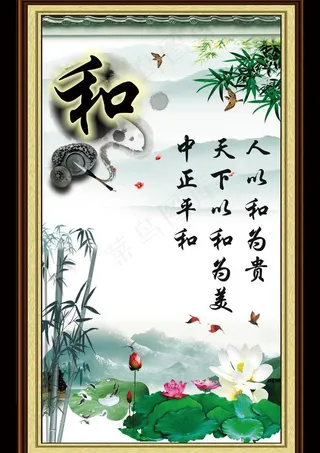 和
人以和为贵
天下以和为美
中正平和